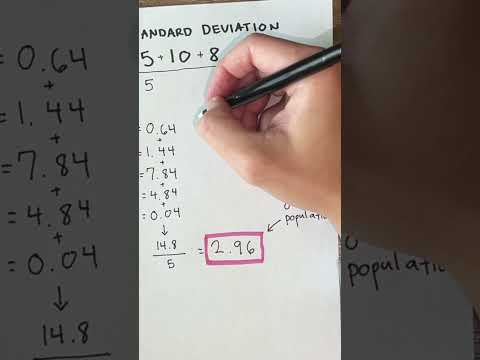 ANDARD DEVIATION
5 + 10 + 8
5
= 0.64
+
= 1.44
+
= 7.84
+
= 4.84
+
= 0.04
↓
14.8
5
= 2.96
populatio
= 0.64
+
= 1.44
+
= 7.84
+
= 4.84
+
= 0.04
↓
14.8
populatio